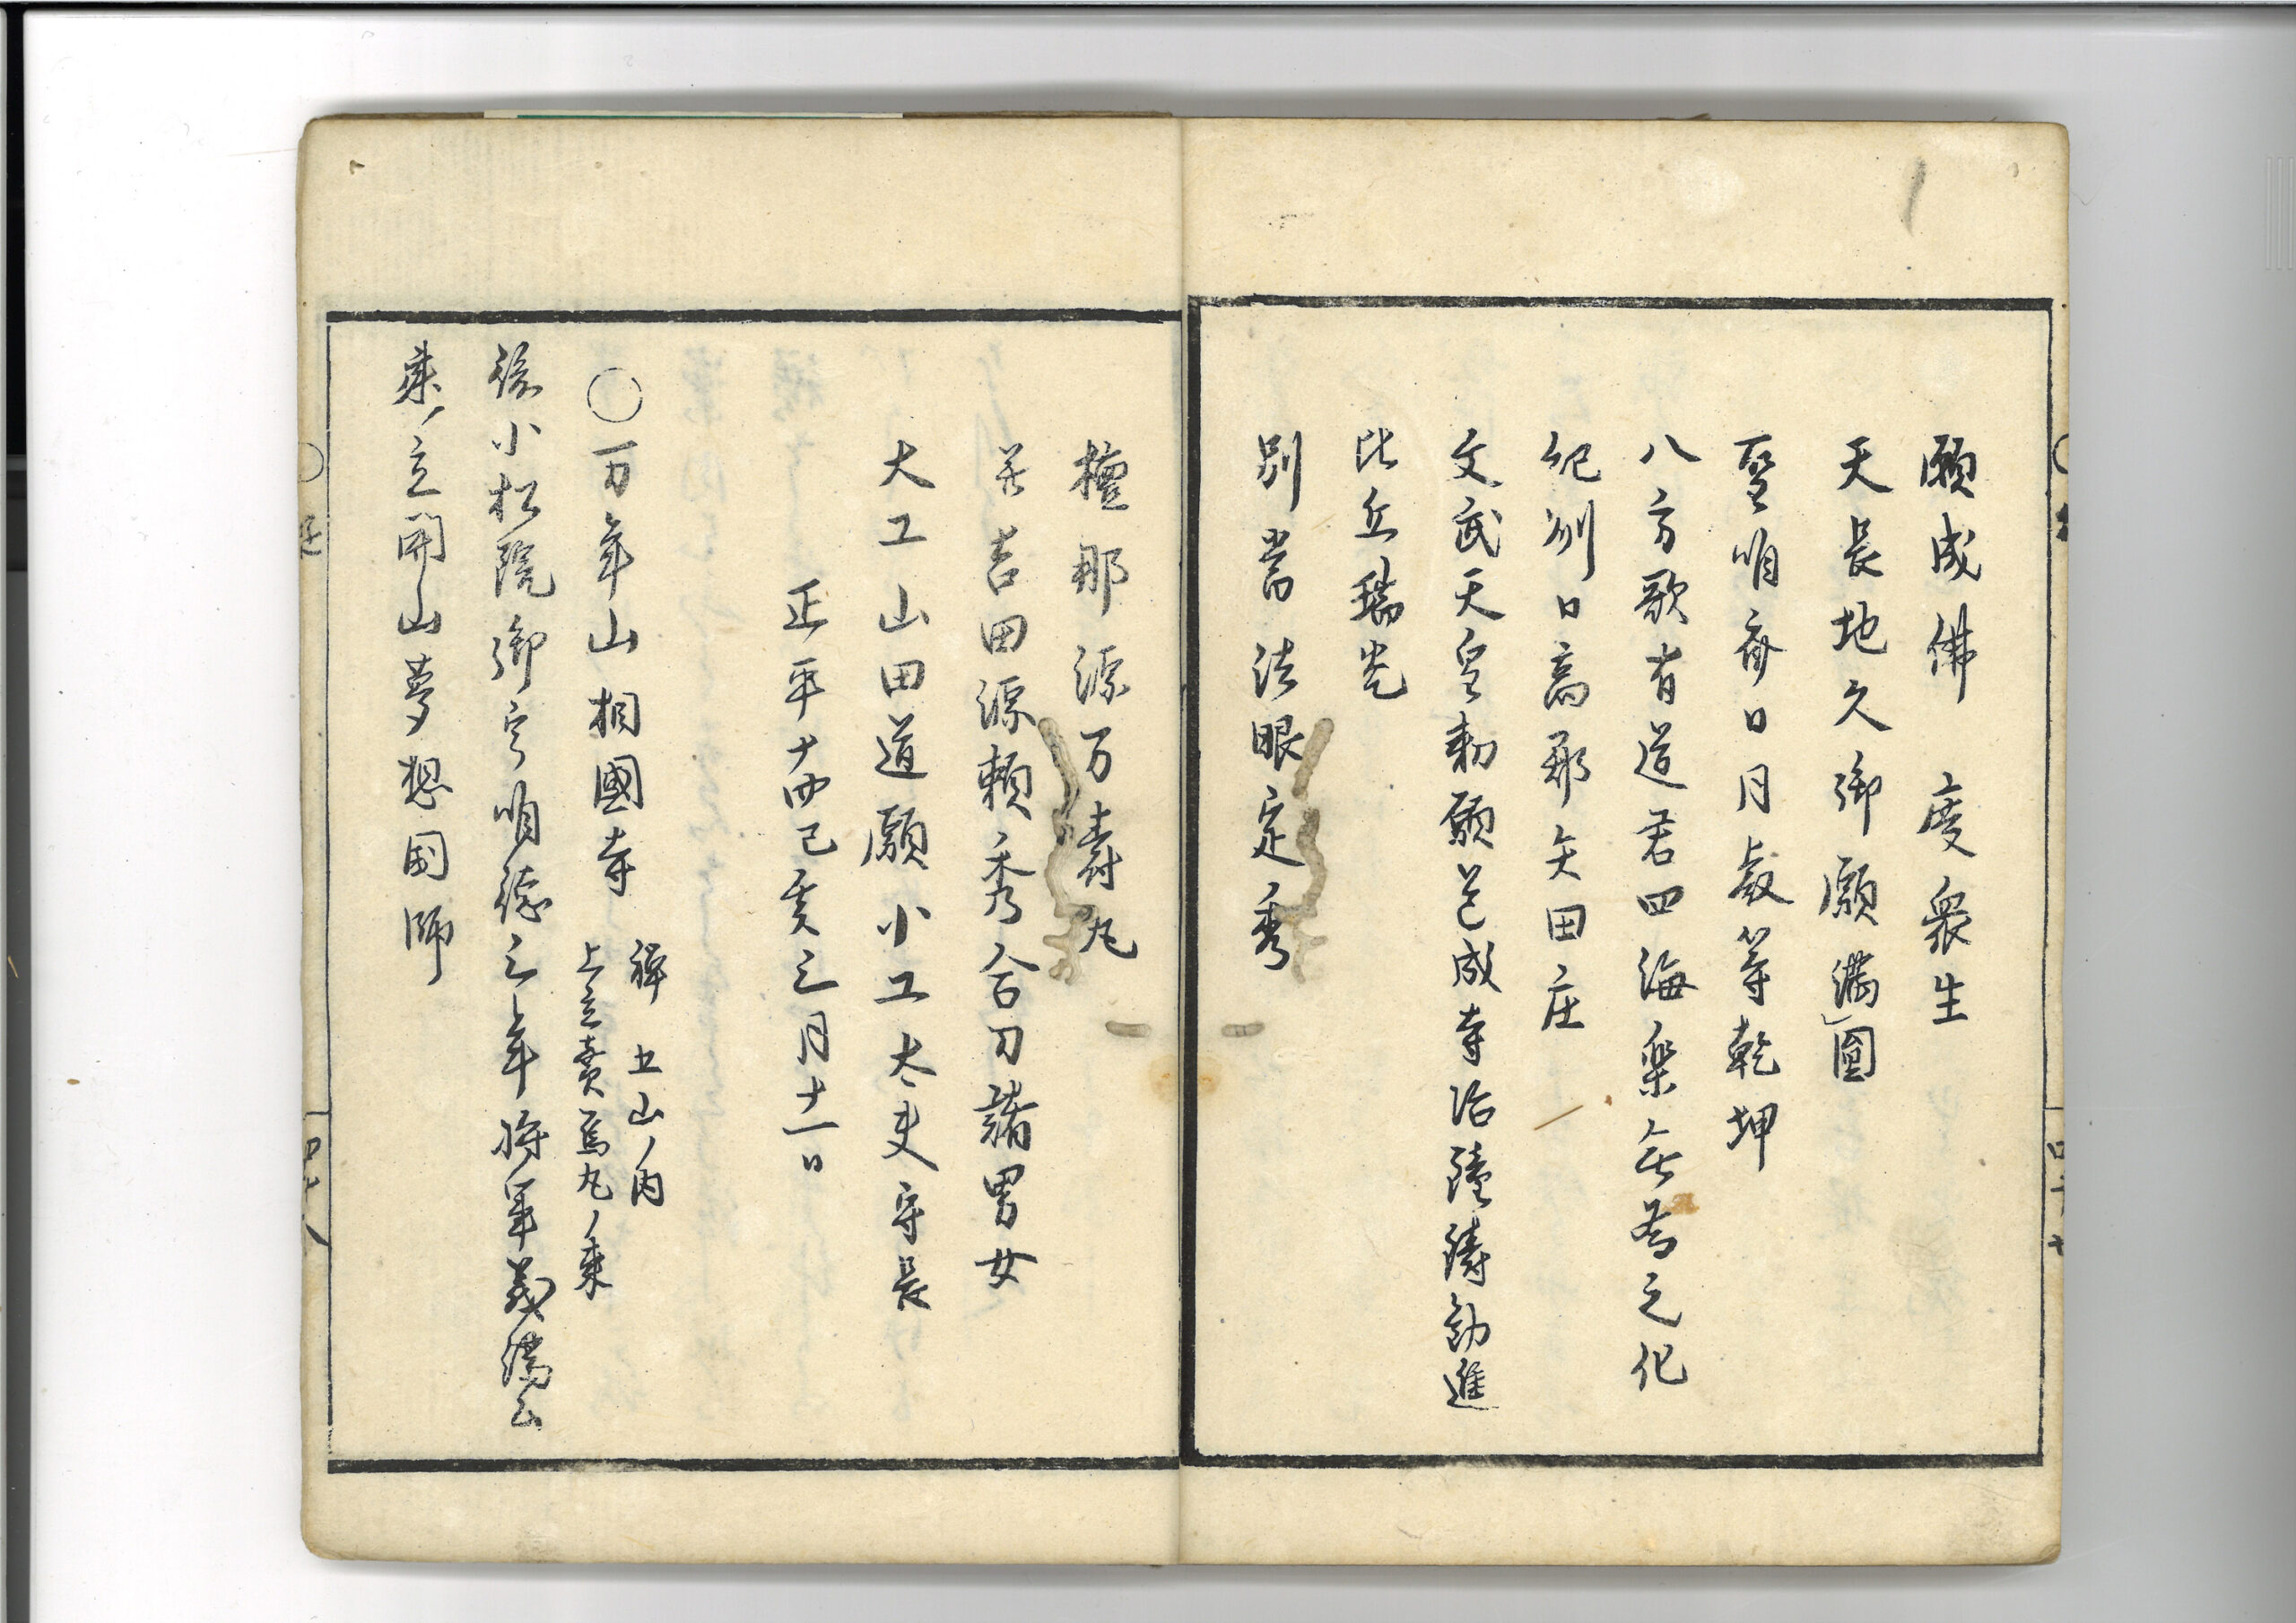 願成佛　度衆生
天長地久御願満圓
聖明齊日月叡筭等乾坤
八方歌有道君四海樂無為之化
紀州日高郡矢田庄
文武天皇勅願道成寺冶鑄勧進
比丘瑞光
別當法眼定秀
檀那源万壽丸
并吉田源頼秀合力諸男女
大工山田道願小工大夫守長
正平十四己亥三月十一日
○万年山相國寺
禅　五山ノ内
上立賣烏丸ノ東
後小松院御宇明徳三年将軍義満公
乗ノ立開山夢想國師
四十七
四十八